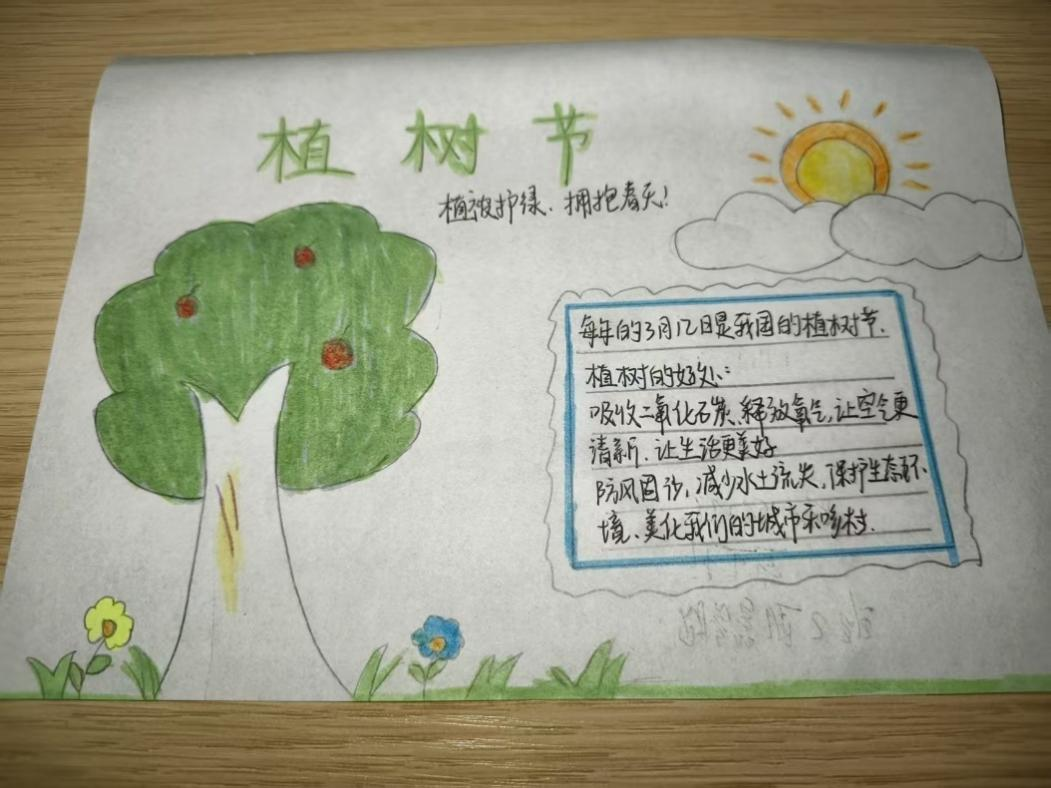 植树节
植被护绿、拥抱春天!
每年的3月12日是我国的植树节.
植树的好处:
吸收二氧化石炭、释放氧气,让空气更
清新、让生活更美好
防风固沙,减少水土流失,保护生态环
境、美化我们的城市和乡村.